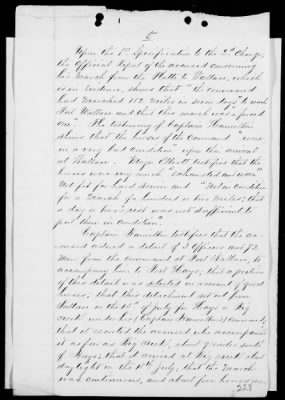 5
Upon the 1st Specification to the 2nd Charge,
the Official Report of the accused concerning
his March from the Platte to Wallace, which
is in evidence, shows that "the command
had marched 182 miles in seven days" to reach
Fort Wallace and that this march was a forced
one". The testimony of Captain Hamilton
shows that the horses of the Command "were
in a very bad condition" upon the arrival
at Wallace. Major Elliott testifies that the
horses were very much "exhausted and worn"
Not fit for hard service and "Not in condition
for a March of a hundred or two Miles; that
a day or two's rest was not sufficient to
put them in condition"
Captain Hamilton testifies that the ac-
cused ordered a detail of 3 Officers and 72
Men from the command at Fort Wallace, to
accompany him to Fort Hays; that a portion
of this detail was selected on account of good
horses; that this detachment set out from
Wallace on the 15th of July for Hays &
Creek under his (Captain Hamilton's) Command;
that it escorted the accused who accompanied
it as far as Big Creek, about 7 miles south
of Hays; that it arrived at Big Creek about
daylight on the 18th July; that the March
was continuous, and about five hours
228